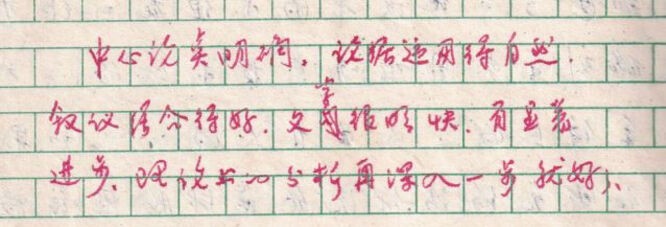 中心论点明确，论据运用得自然，
叙议结合得好，文字很明快，有显著
进步，理论上的分析再深入一步就好了。